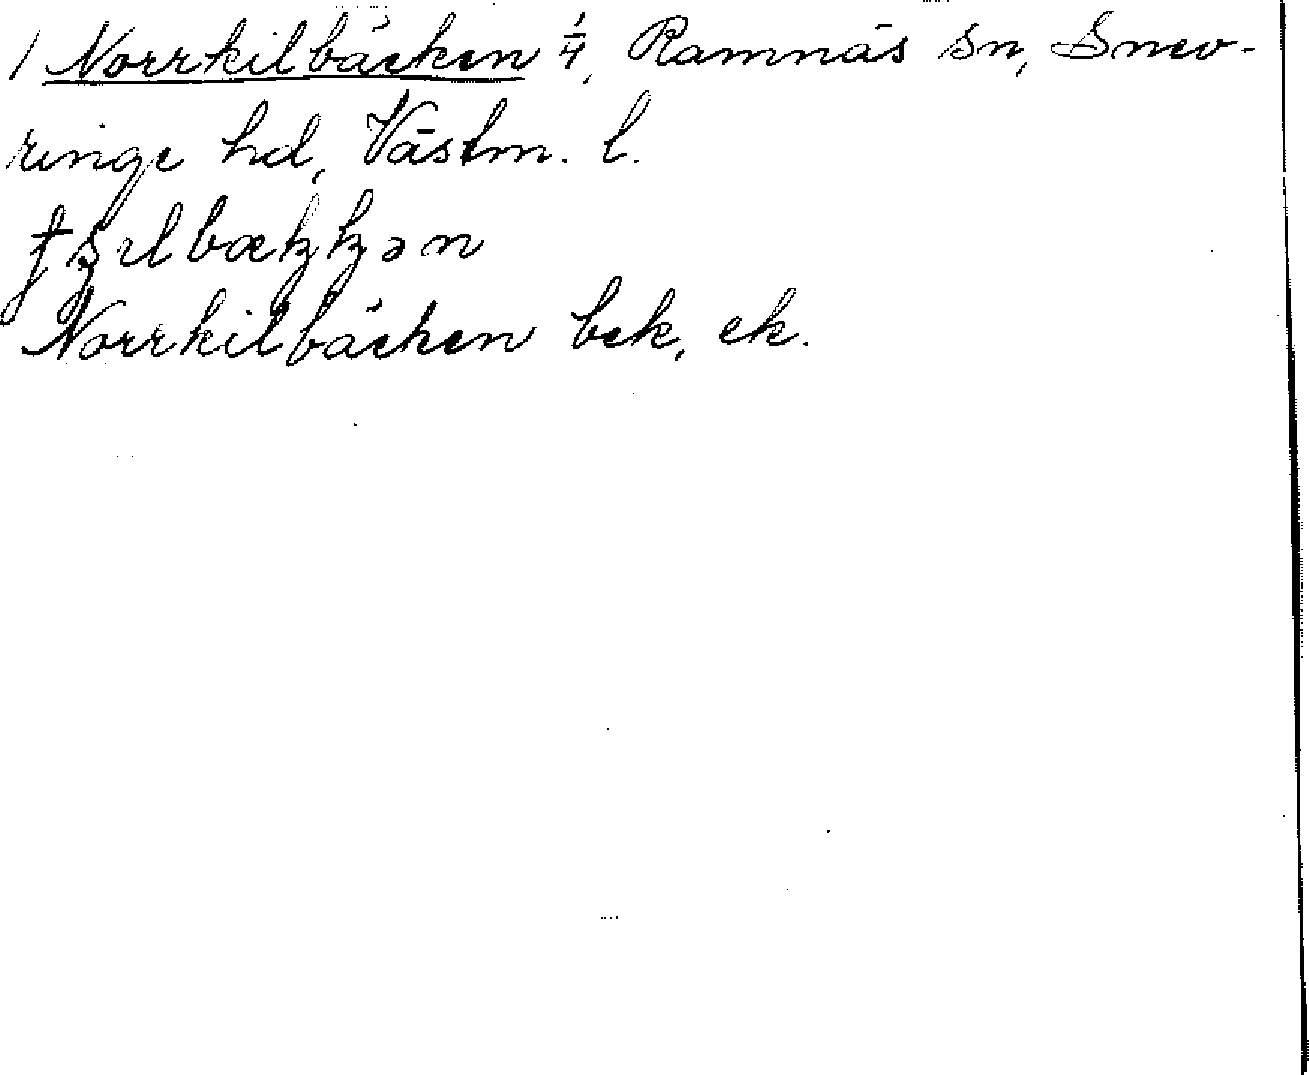 / Norrkilbäcken 1/4, Ramnäs sn, Snev-
ringe hd, Västm. l.
Norrkilbäcken bek, ek.